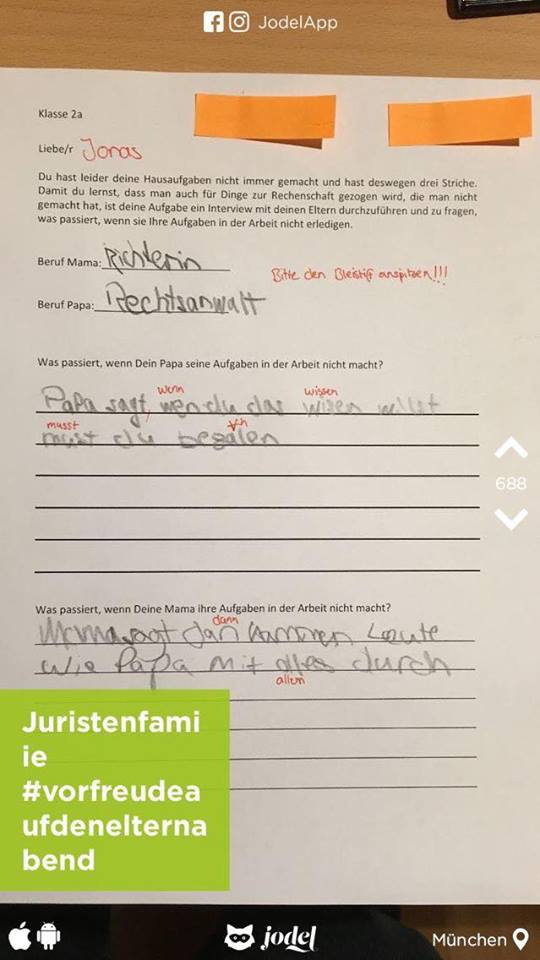 JodelApp
Klasse 2a
Liebe/r Jonas
Du hast leider deine Hausaufgaben nicht immer gemacht und hast deswegen drei Striche.
Damit du lernst, dass man auch für Dinge zur Rechenschaft gezogen wird, die man nicht
gemacht hat, ist deine Aufgabe ein Interview mit deinen Eltern durchzuführen und zu fragen,
was passiert, wenn sie Ihre Aufgaben in der Arbeit nicht erledigen.
Beruf Mama: Richterin
Bitte den Bleistift anspitzen!!!
Beruf Papa: Rechtsanwalt
Was passiert, wenn Dein Papa seine Aufgaben in der Arbeit nicht macht?
wenn wissen
Papa sagt, wen du das wisen willst
musst h
must du bezalen
Was passiert, wenn Deine Mama ihre Aufgaben in der Arbeit nicht macht?
dann
Mama sagt dan kommen Leute
wie Papa mit alles durch
allem
Juristenfami
ie
#vorfreudea
ufdenelterna
bend
688
jodel
München